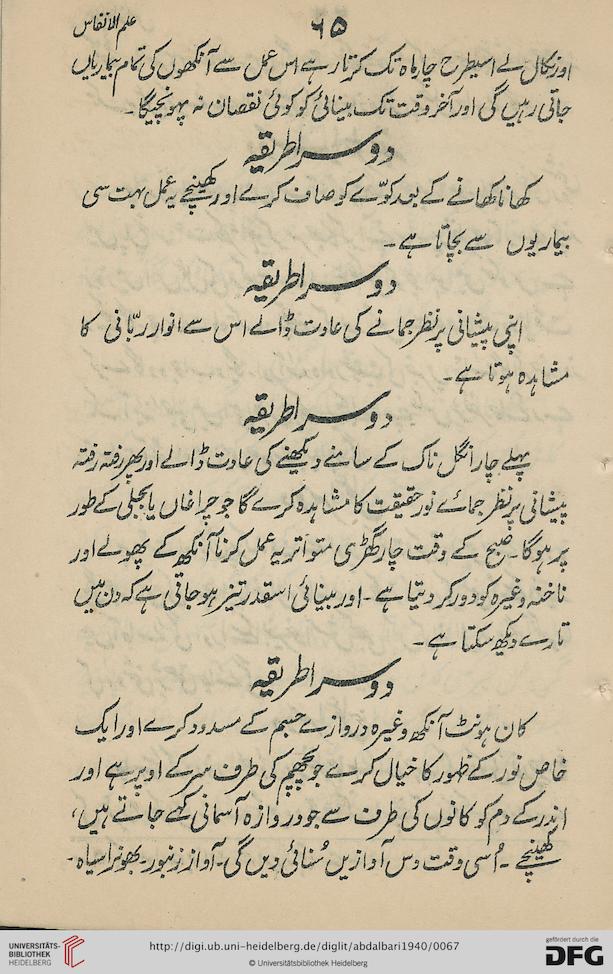 ۶۵
علم الانفاس
اور نکال لے اسیطرح چار ماہ تک کرتا رہے اس عمل سے آنکھوں کی تمام بیماریاں
جاتی رہیں گی اور آخر وقت تک بینائی کو کوئی نقصان نہ پہونچیگا۔
دوسرا طریقہ
کھانا کھانے کے بعد کوّے کو صاف کرے اور کھینچے یہ عمل بہت سی
بیماریوں سے بچاتا ہے۔
دوسرا طریقہ
اپنی پیشانی پر نظر جمانے کی عادت ڈالے اس سے انوار ربّانی کا
مشاہدہ ہوتا ہے۔
دوسرا طریقہ
پہلے چار انگل ناک کے سامنے دیکھنے کی عادت ڈالے اور پھر رفتہ رفتہ
پیشانی پر نظر جمائے نور حقیقت کا مشاہدہ کرے گا جو چراغاں یا بجلی کے طور
پر ہوگا۔ صبح کے وقت چار گھڑی متواتر یہ عمل کرنا آنکھ کے پھولے اور
ناخنہ وغیرہ کو دور کر دیتا ہے۔ اور بینائی اسقدر تیز ہو جاتی ہے کہ دن میں
تارے دیکھ سکتا ہے۔
دوسرا طریقہ
کان ہونٹ آنکھ وغیرہ دروازے جسم کے مسدود کرے اور ایک
خاص نور کے ظہور کا خیال کرے جو پچھم کی طرف سر کے اوپر ہے اور
اندر کے دم کو کانوں کی طرف سے جو دروازہ آسمانی کہے جاتے ہیں،
کھینچے۔ اُسی وقت دس آوازیں سُنائی دیں گی۔ آواز زنبور۔ بھونرا سیاہ۔
UNIVERSITÄTS-
BIBLIOTHEK
HEIDELBERG
http://digi.ub.uni-heidelberg.de/diglit/abdalbari1940/0067
© Universitätsbibliothek Heidelberg
gefördert durch die
DFG